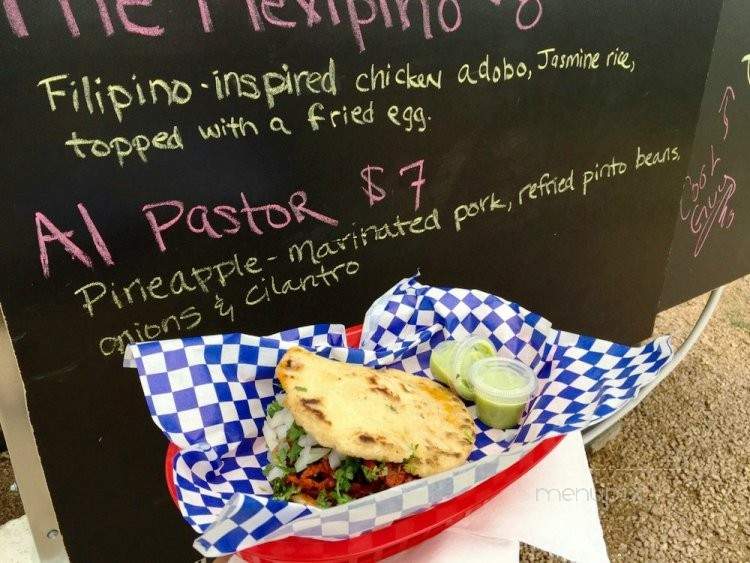 The Mexipino $8
Filipino-inspired chicken adobo, Jasmine rice,
topped with a fried egg.
Al Pastor $7
Pineapple-marinated pork, refried pinto beans,
onions & cilantro
menupix